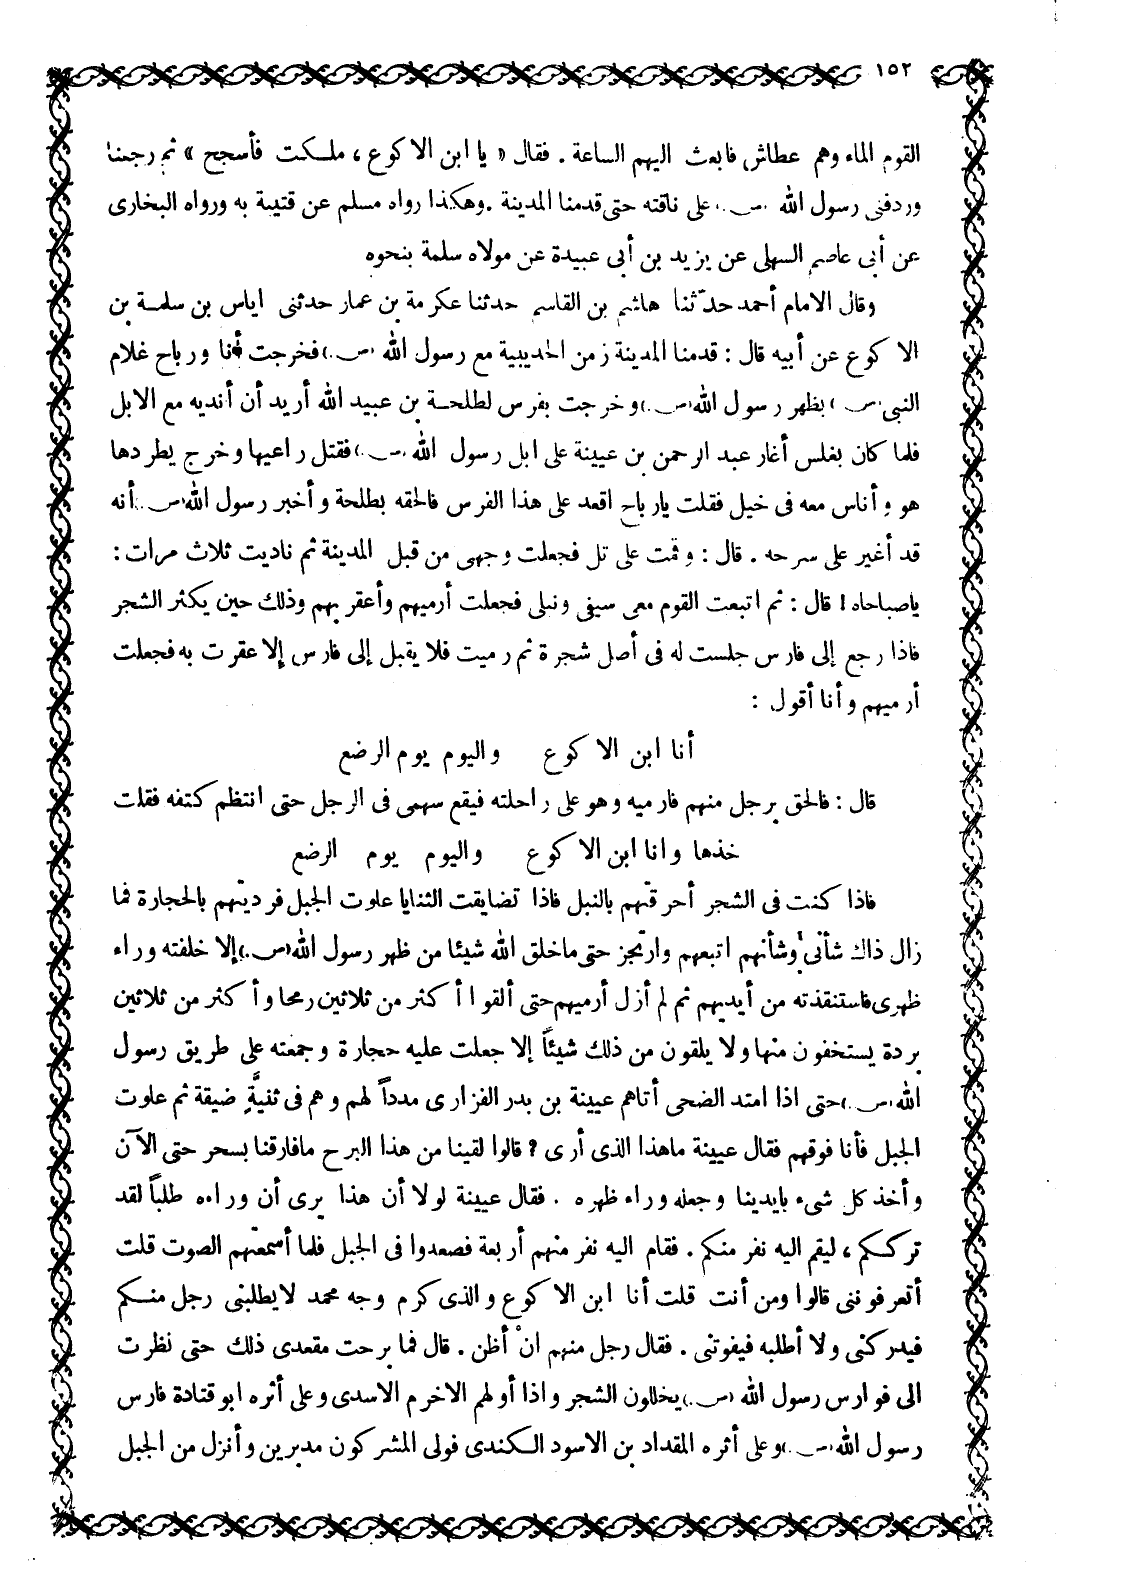 ١٥٢
القوم الماء وهم عطاش فابعث اليهم الساعة . فقال « يا ابن الاكوع ، ملكت فأسجح » ثم رجعنا
وردفنى رسول الله (ص) على ناقته حتى قدمنا المدينة . وهكذا رواه مسلم عن قتيبة به ورواه البخارى
عن أبى عاصم السهلى عن يزيد بن أبى عبيدة عن مولاه سلمة بنحوه
وقال الامام أحمد حدّثنا هاشم بن القاسم حدثنا عكرمة بن عمار حدثنى اياس بن سلمة بن
الاكوع عن أبيه قال : قدمنا المدينة زمن الحديبية مع رسول الله (ص) فخرجت أنا ورباح غلام
النبى (ص) بظهر رسول الله (ص) وخرجت بفرس لطلحة بن عبيد الله أريد أن أنديه مع الابل
فلما كان بغلس أغار عبد الرحمن بن عيينة على ابل رسول الله (ص) فقتل راعيها وخرج يطردها
هو وأناس معه فى خيل فقلت يارباح اقعد على هذا الفرس فالحقه بطلحة وأخبر رسول الله (ص) أنه
قد أغير على سرحه . قال : وقمت على تل فجعلت وجهى من قبل المدينة ثم ناديت ثلاث مرات :
ياصباحاه ! قال : ثم اتبعت القوم معى سيفى ونبلى فجعلت أرميهم وأعقر بهم وذلك حين يكثر الشجر
فاذا رجع إلى فارس جلست له فى أصل شجرة ثم رميت فلا يقبل إلى فارس إلا عقرت به فجعلت
أرميهم وأنا أقول :
أنا ابن الاكوع واليوم يوم الرضع
قال : فالحق برجل منهم فارميه وهو على راحلته فيقع سهمى فى الرجل حتى انتظم كتفه فقلت
خذها وانا ابن الاكوع واليوم يوم الرضع
فاذا كنت فى الشجر أحرقتهم بالنبل فاذا تضايقت الثنايا علوت الجبل فرديتهم بالحجارة فما
زال ذاك شأنى وشأنهم اتبعهم وارتجز حتى ماخلق الله شيئا من ظهر رسول الله (ص) إلا خلفته وراء
ظهرى فاستنقذته من أيديهم ثم لم أزل أرميهم حتى ألقوا أكثر من ثلاثين رمحا وأكثر من ثلاثين
بردة يستخفون منها ولا يلقون من ذلك شيئاً إلا جعلت عليه حجارة وجمعته على طريق رسول
الله (ص) حتى اذا امتد الضحى أتاهم عيينة بن بدر الفزارى مدداً لهم وهم فى ثنيةٍ ضيقة ثم علوت
الجبل فأنا فوقهم فقال عيينة ماهذا الذى أرى ? قالوا لقينا من هذا البرح مافارقنا بسحر حتى الآن
وأخذ كل شىء بايدينا وجعله وراء ظهره . فقال عيينة لولا أن هذا يرى أن وراءه طلباً لقد
ترككم ، ليقم اليه نفر منكم . فقام اليه نفر منهم أربعة فصعدوا فى الجبل فلما أسمعتهم الصوت قلت
أتعرفوننى قالوا ومن أنت قلت أنا ابن الاكوع والذى كرم وجه محمد لايطلبنى رجل منكم
فيدركنى ولا أطلبه فيفوتنى . فقال رجل منهم انْ أظن . قال فما برحت مقعدى ذلك حتى نظرت
الى فوارس رسول الله (ص) يخللون الشجر واذا أولهم الاخرم الاسدى وعلى أثره ابو قتادة فارس
رسول الله (ص) وعلى أثره المقداد بن الاسود الكندى فولى المشركون مدبرين وأنزل من الجبل